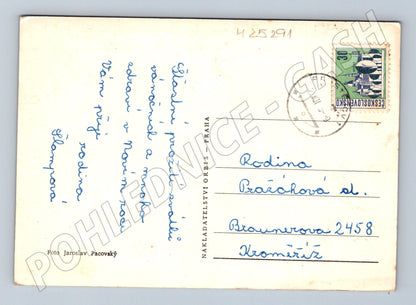 H 25291
30
ČESKOSLOVENSKO
Šťastné prožití svátků
vánočních a mnoho
zdraví v Novém roce
Vám přeje rodina
Šlampová
Foto Jaroslav Pacovský
NAKLADATELSTVÍ ORBIS – PRAHA
Rodina
Pražáková st.
Braunerova 2458
Kroměříž
POHLEDNICE - CASH